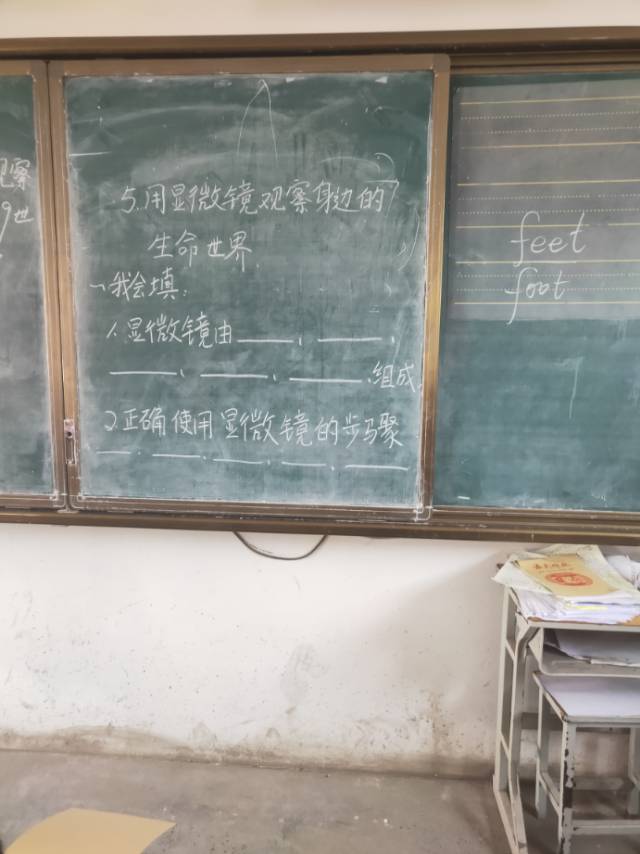 观察
世
5.用显微镜观察身边的
生命世界.
一、我会填:
1.显微镜由____、____、
____、____、____.组成.
2.正确使用显微镜的步骤
__.__.__.__.__
feet
foot